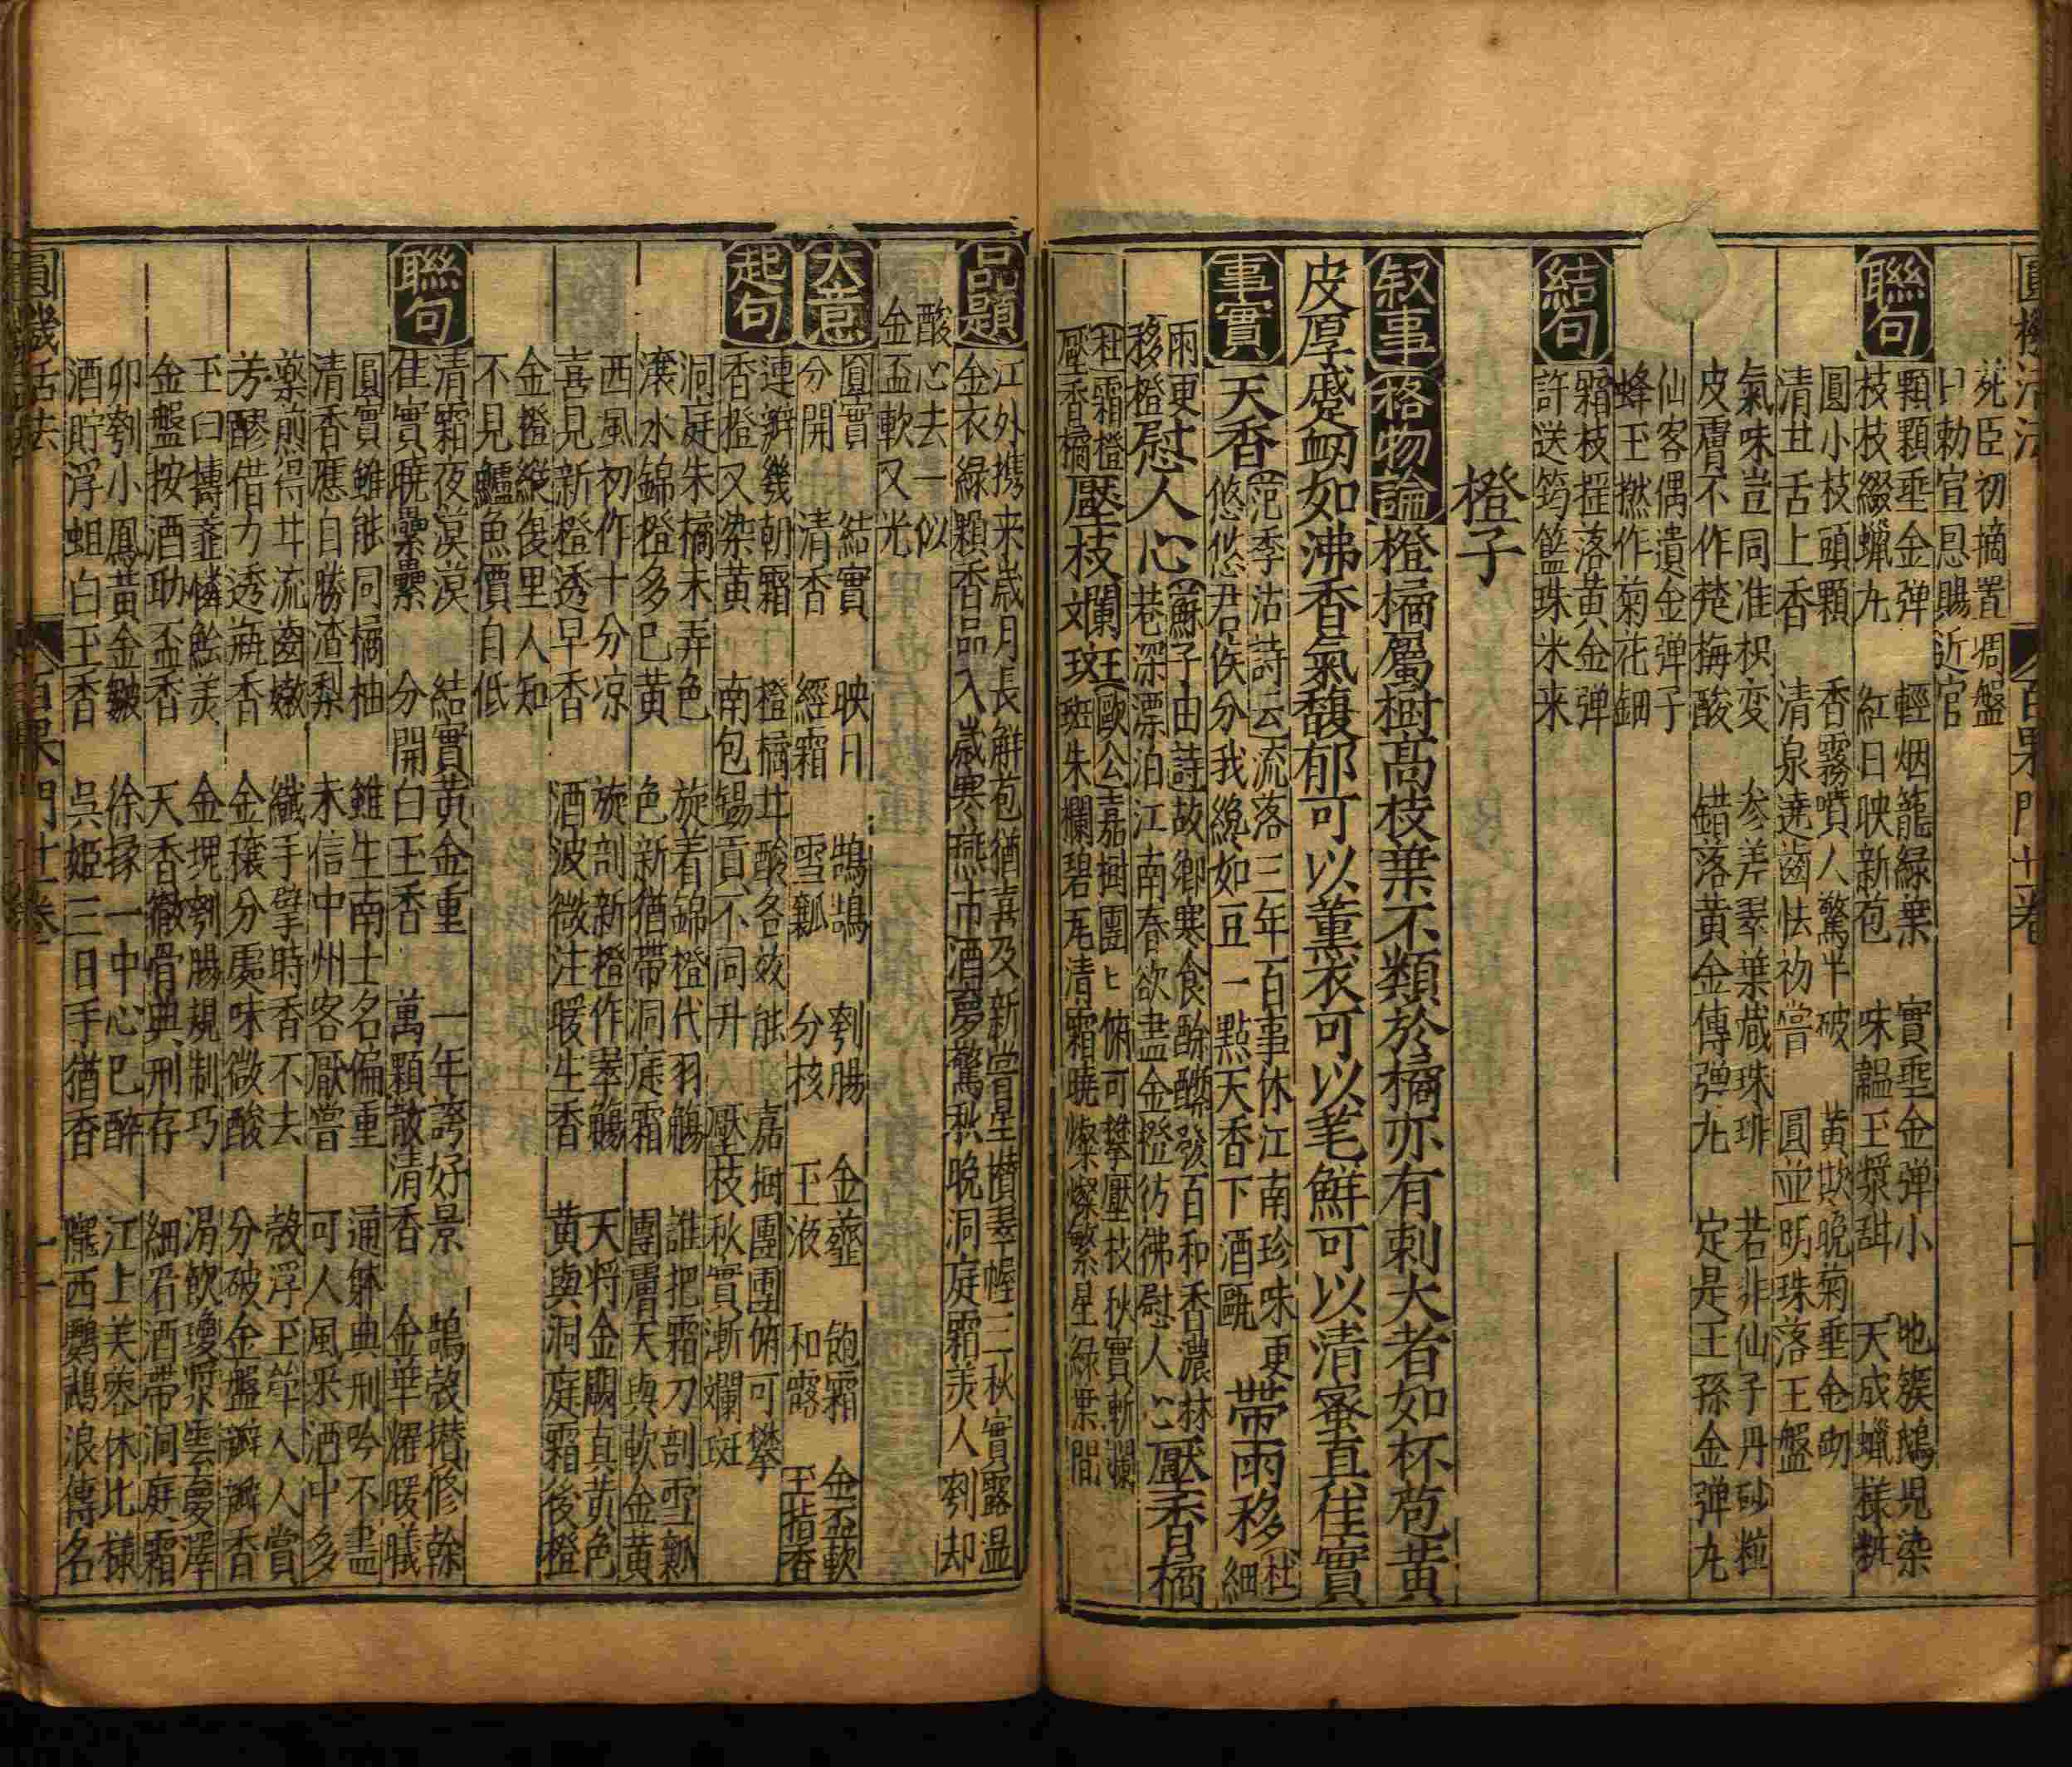 圓機活法 百果門廿一卷 十
死臣初摘置凋盤
卜勅宣恩賜近官
聯句 顆顆垂金弹 輕烟籠緑葉 實垂金弹小 地簇鵝兒染
枝枝綴蠟丸 紅日映新苞 味韞玉漿甜 天成蠟樣粧
圓小枝頭顆 香霧噴人驚半破 黃欺晚菊垂金砌
清甘舌上香 清泉遶齒怯初嘗 圓並明珠落玉盤
氣味豈同准枳変 参差翠葉蔵珠琲 若非仙子丹砂粒
皮膚不作楚梅酸 錯落黃金傳弹丸 定是王孫金弹丸
仙客偶遺金弹子
蜂王撚作菊花鈿
結句 霜枝摇落黃金弹
許送筠籃珠米来
橙子
叙事 格物論 橙橘屬樹高枝葉不類於橘亦有刺大者如杯苞黃
皮厚蹙衂如沸香氣馥郁可以薰衣可以芼鮮可以清蜜直佳實
事實 天香 范季沽詩云流落三年百事休江南珍味更
悠悠君佚分我纔如豆一點天香下酒甌 帶雨移 杜
細
雨更
移橙 慰人心 蘇子由詩故鄉寒食酴醾發百和香濃林
巷深漂泊江南春欲盡金橙彷彿慰人心 壓香橘
杜霜橙
壓香橘 壓枝斕斑 歐公嘉樹團卜俯可攀壓枝秋實漸斕
斑朱欄碧瓦清霜曉燦燦繁星緑葉間
品題 江外携来歳月長觧苞猶喜及新嘗星攅翠幄三秋實露温
金衣緑顆香品入歲寒燕市酒夢驚秋晚洞庭霜美人刳却
酸心去一似
金盃軟又光
大意 圓實 結實 映日 鵠鵠 刳腸 金虀 飽霜 金盃軟
分開 清香 經霜 雪瓤 分核 玉液 和露 玉指香
起句 連瓣幾朝霜 橙橘甘酸各效能 嘉樹團團俯可攀
香橙又染黃 南包錫貢不同升 壓枝秋實漸斕斑
洞庭朱橘未弄色 旋着錦橙代羽觴 誰把霜刀剖雪瓤
滾水錦橙多已黃 色新猶帶洞庭霜 團膚天與軟金黃
西風初作十分凉 旋剖新橙作翠觴 天将金闕真黃色
喜見新橙透早香 酒波微注暖生香 黃與洞庭霜後橙
金橙縱復里人知
不見鱸魚價自低
聯句 清霜夜漠漠 結實黃金重 一年誇好景 鵠殼攅修榦
佳實曉纍纍 分開白玉香 萬顆散清香 金華耀暖曦
圓實雖能同橘柚 雖生南士名偏重 通躰典刑吟不盡
清香應自勝渣梨 未信中州客厭嘗 可人風釆酒中多
藥煎得甘流齒嫩 纖手擘時香不去 殼浮玉斝人人賞
芳醪借力透瓶香 金穰分處味微酸 分破金盤瓣瓣香
玉臼擣虀憐鱠美 金塊刳腸規制巧 涓飲瓊漿雲夢澤
金盤按酒助盃香 天香徹骨典刑存 細看酒帶洞庭霜
卯刳小鳳黃金皺 徐掾一中心巳醉 江上芙蓉休比様
酒貯浮蛆白玉香 呉姬三日手猶香 隴西鸚鵡浪傳名
圓機活法 百果門廿一卷 十一